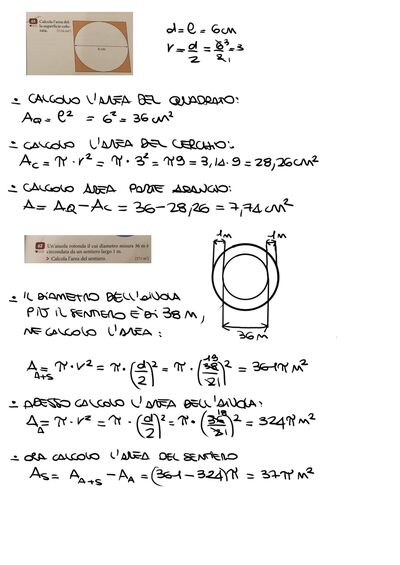 Calcola l'area della superficie colorata.
6 cm
d = l = 6 cm
r = d/2 = 6³/2₁ = 3
- CALCOLO L'AREA DEL QUADRATO:
AQ = l² = 6² = 36 cm²
- CALCOLO L'AREA DEL CERCHIO:
AC = π · r² = π · 3² = π9 = 3,14 · 9 = 28,26 cm²
- CALCOLO AREA PARTE ARANCIO:
A = AQ - AC = 36 - 28,26 = 7,74 cm²
Un'aiuola rotonda il cui diametro misura 36 m è
circondata da un sentiero largo 1 m.
> Calcola l'area del sentiero. [37π m²]
1 M 1 M
36 M
- IL DIAMETRO DELL'AIUOLA
PIÙ IL SENTIERO È DI 38 M,
NE CALCOLO L'AREA:
A A+S = π · r² = π · (d/2)² = π · (38¹⁹/2₁)² = 361π m²
- ADESSO CALCOLO L'AREA DELL'AIUOLA:
A A = π · r² = π · (d/2)² = π · (36¹⁸/2₁)² = 324π m²
- ORA CALCOLO L'AREA DEL SENTIERO
AS = A A+S - AA = (361 - 324)π = 37π m²